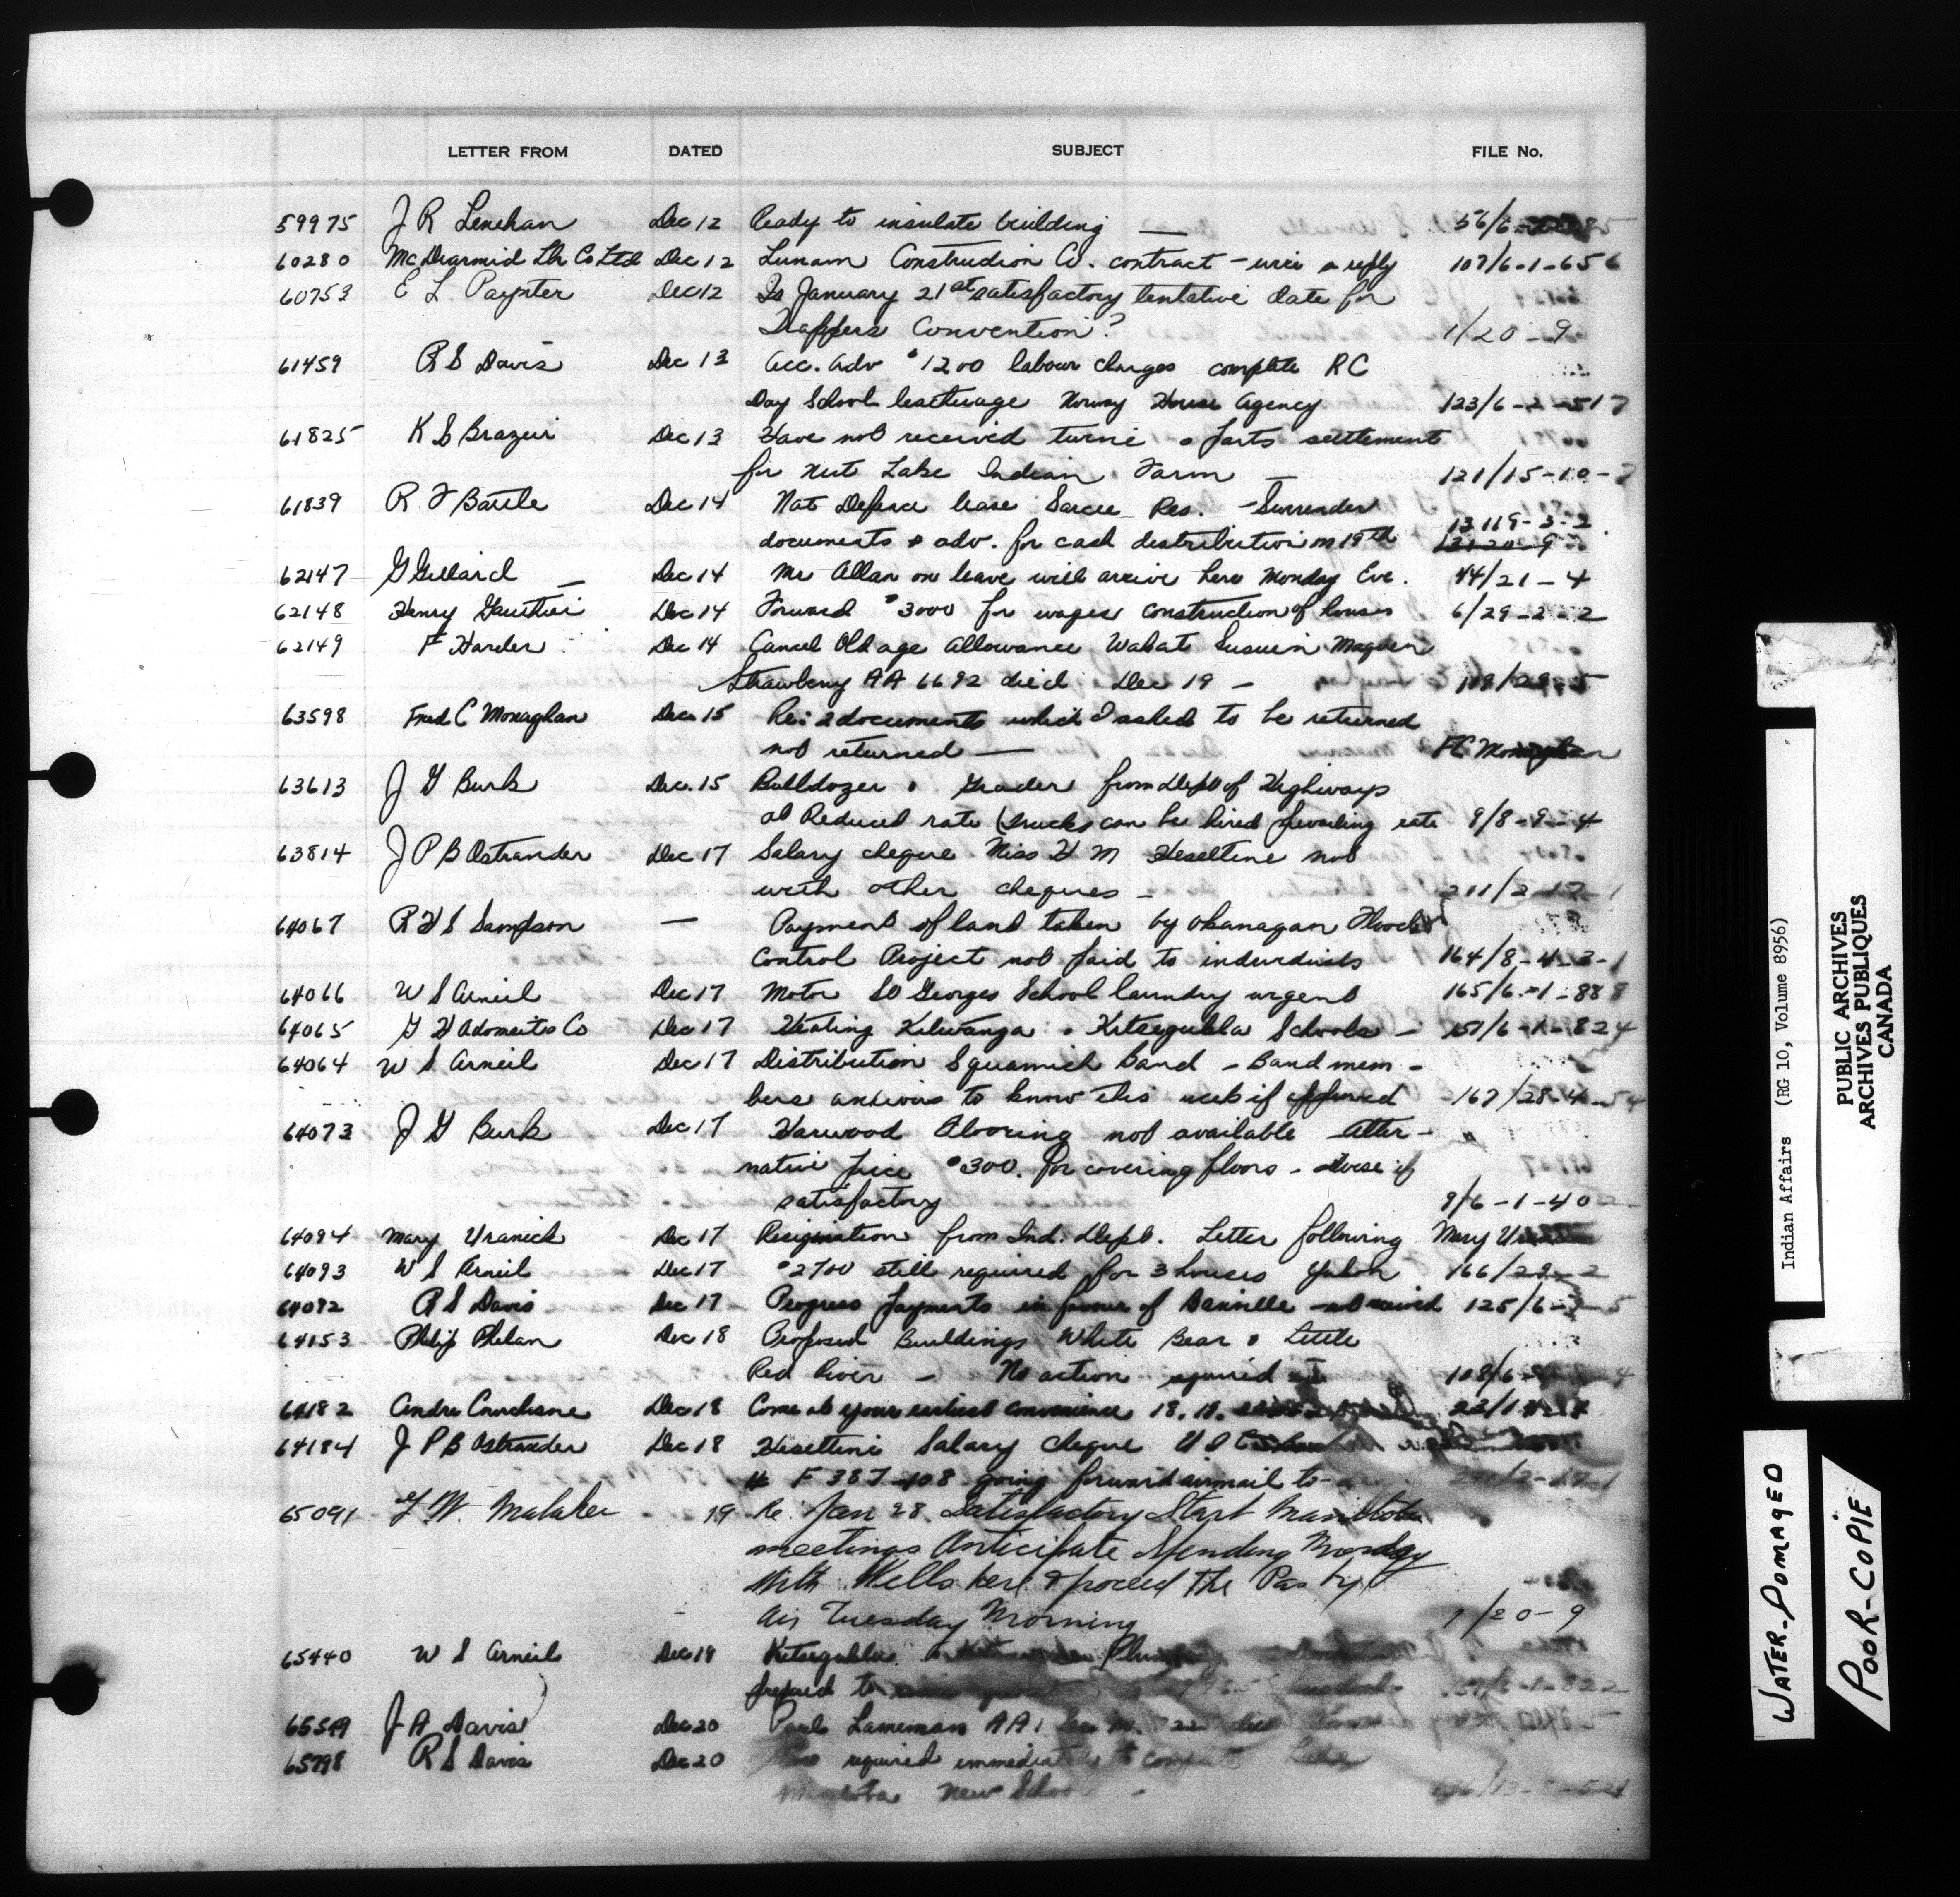 LETTER FROM DATED SUBJECT FILE No.
59975 J R Lenehan Dec 12 Ready to insulate building — 56/6-
60280 McDiarmid Lbr Co Ltd Dec 12 Lunam Construction Co. contract - wire a reply 107/6-1-656
60753 E L Paynter Dec 12 Is January 21st satisfactory tentative date for
Trappers Convention? 1/20-9
61459 R S Davis Dec 13 Acc. adv $1200 labour charges complete RC
Day School teacherage Norway House Agency 123/6-2-517
61825 K S Brazier Dec 13 Have not received twine & parts settlement
for Nut Lake Indian Farm — 121/15-10-7
61839 R F Battle Dec 14 Nat Defence lease Sarcee Res. - Surrender
documents & adv. for cash distribution on 19th 13119-3-2
62147 G Gillard — Dec 14 Mr Allan on leave will arrive here Monday Eve. 44/21-4
62148 Henry Gauthier Dec 14 Forward $3000 for wages construction of houses 6/29-2-2
62149 F Harder Dec 14 Cancel Old age Allowance Wabat
Strawberry AA 6692 died Dec 19 - 109/29-5
63598 Fred C Monaghan Dec. 15 Re: 2 documents which I asked to be returned
not returned — FC Monaghan
63613 J G Burk Dec. 15 Bulldozer & Grader from Dept of Highways
at Reduced rate (trucks can be hired prevailing rate 9/8-9-4
63814 J P B Ostrander Dec 17 Salary cheque Miss H M Heseltine not
with other cheques - 211/2-17-1
64067 R H S Sampson — Payment of land taken by Okanagan Flood
Control Project not paid to individuals 164/8-4-3-1
64066 W S Arneil Dec 17 Motor St Georges School laundry urgent 165/6-1-888
64065 G H Adomeit Co Dec 17 Heating Kitwanga & Kitsegukla Schools - 157/6-1-824
64064 W S Arneil Dec 17 Distribution Squamish Band - Band mem-
bers anxious to know this week if approved 167/28-4-54
64073 J G Burk Dec 17 Harwood flooring not available Alter-
native price $300. for covering floors - Advise if
satisfactory 9/6-1-40
64094 Mary Uranick Dec 17 Resignation from Ind. Dept. Letter following Mary
64093 W S Arneil Dec 17 $2700 still required for 3 houses Yukon 166/29-2
64092 R S Davis Dec 17 Progress payments in favour of not received 125/6-
64153 Philip Phelan Dec 18 Proposed Buildings White Bear & Little
Red River - No action required 108/6-
64182 Andre Dec 18 Come at your earliest convenience
64184 J P B Ostrander Dec 18 Heseltine Salary cheque
# F 387 408 going forward airmail to-
65091 19 Re Jan 28 Satisfactory Start Manitoba
meetings Anticipate Spending Monday
With Wells here & proceed The Pas by
Air Tuesday Morning 1/20-9
65440 W S Arneil Dec 19 Kitsegukla
prepaid to
65549 J A Davis Dec 20 Paul Lameman
65798 R S Davis Dec 20 required immediately to complete
New School
Indian Affairs (RG 10, Volume 8956)
PUBLIC ARCHIVES
ARCHIVES PUBLIQUES
CANADA
WATER-DOMAGED
POOR-COPIE